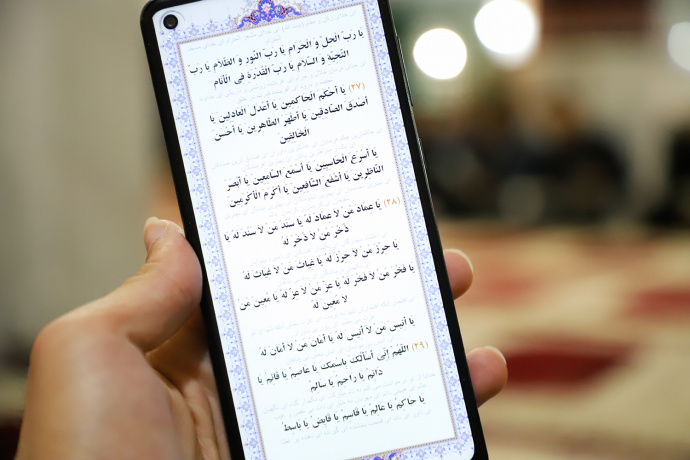 يا رب الحل و الحرام يا رب النور و الظلام يا رب
التحية و السلام يا رب القدرة في الأنام
(٢٧) يا أحكم الحاكمين يا أعدل العادلين يا
أصدق الصادقين يا أطهر الطاهرين يا أحسن
الخالقين
يا أسرع الحاسبين يا أسمع السامعين يا أبصر
الناظرين يا أشفع الشافعين يا أكرم الأكرمين
(٢٨) يا عماد من لا عماد له يا سند من لا سند له يا
ذخر من لا ذخر له
يا حرز من لا حرز له يا غياث من لا غياث له
يا فخر من لا فخر له يا عز من لا عز له يا معين من
لا معين له
يا أنيس من لا أنيس له يا أمان من لا أمان له
(٢٩) اللهم إني أسألك باسمك يا عاصم يا قائم يا
دائم يا راحم يا سالم
يا حاكم يا عالم يا قاسم يا قابض يا باسط